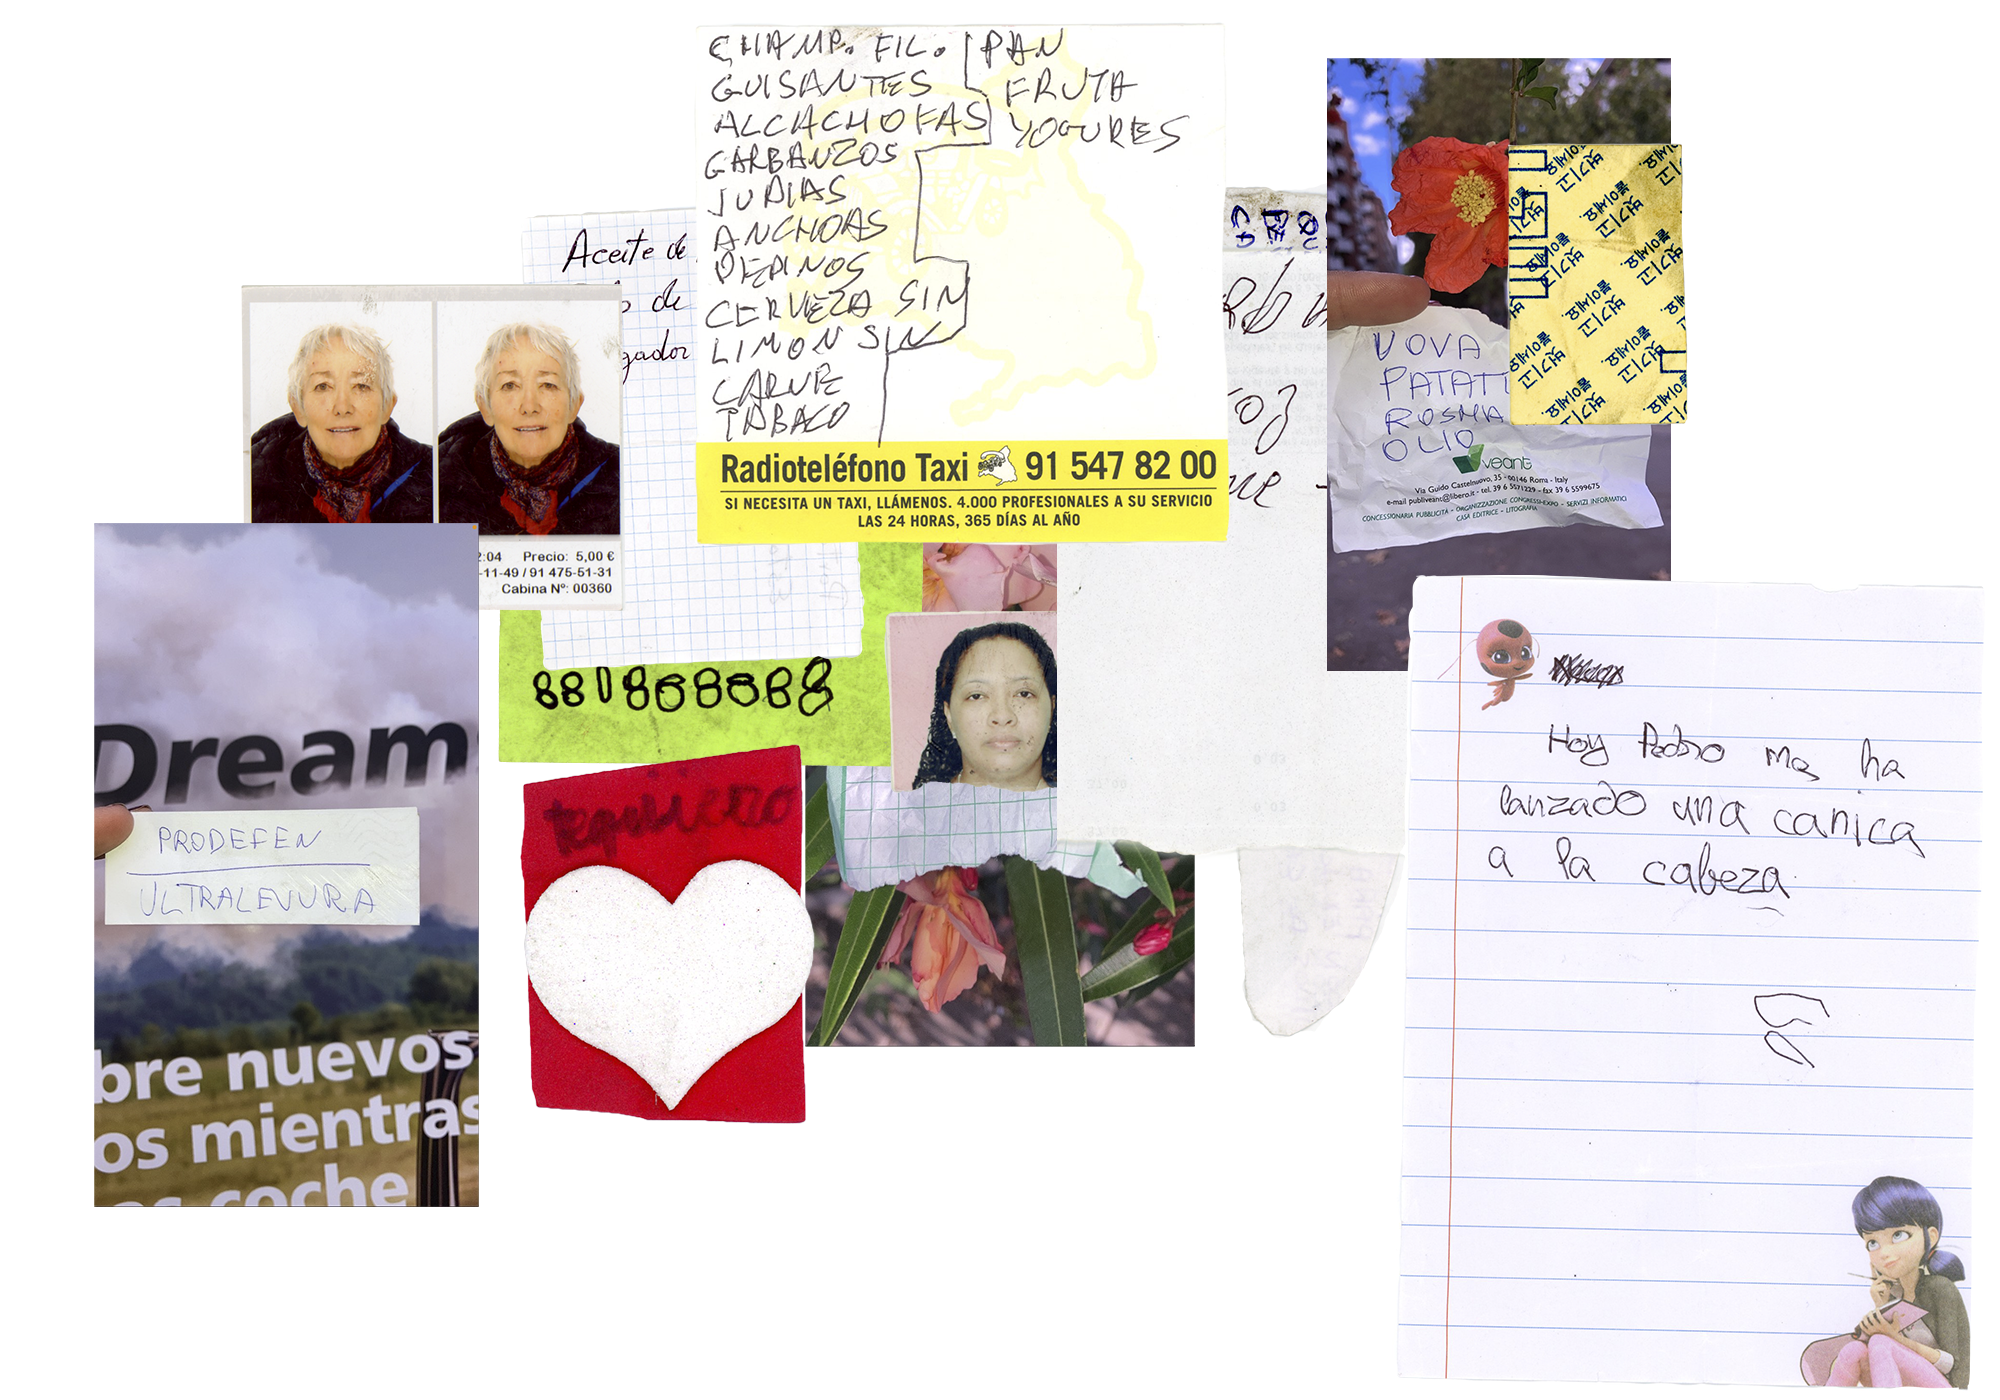 CHAMP. FIL.
GUISANTES
ALCACHOFAS
GARBANZOS
JUDIAS
ANCHOAS
PEPINOS
CERVEZA SIN
LIMON SIN
CARNE
TABACO
PAN
FRUTA
YOGURES
Radioteléfono Taxi 91 547 82 00
SI NECESITA UN TAXI, LLÁMENOS. 4.000 PROFESIONALES A SU SERVICIO
LAS 24 HORAS, 365 DÍAS AL AÑO
Aceite de
de
gador
2:04 Precio: 5,00 €
-11-49 / 91 475-51-31
Cabina Nº: 00360
Dreams
PRODEFEN
ULTRALEVURA
bre nuevos
os mientras
os coche
tequiero
UOVA
PATAT
ROSMA
OLIO
veant
Via Guido Castelnuovo, 35 - 00146 Roma - Italy
e-mail publiveant@libero.it - tel. 39 6 5571229 - fax 39 6 5599675
CONCESSIONARIA PUBBLICITÀ - ORGANIZZAZIONE CONGRESSI-EXPO - SERVIZI INFORMATICI
CASA EDITRICE - LITOGRAFIA
벗기고
붙이세요.
Hoy Pedro me ha
lanzado una canica
a la cabeza